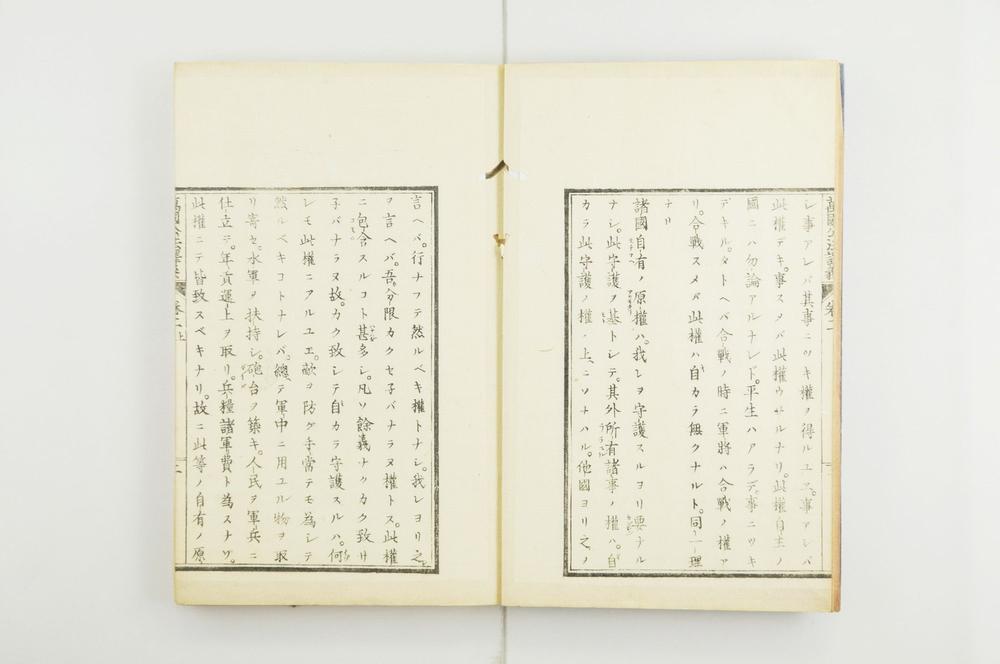 シ事アレバ其事ニツキ權ヲ得ルユヱ。事アレバ
此權デキ。事スメバ此權ウサルナリ。此權自主ノ
國ニハ勿論アルナレド。平生ハアラデ。事ニツキ
デキル。タトヘバ合戰ノ時ニ軍將ハ合戰ノ權ア
リ。合戰スメバ此權ハ自カラ無クナルト。同一理
ナリ
諸國自有ノ原權ハ。我レヲ守護スルヨリ要ナル
ナシ。此守護ヲ基トシテ。其外所有諸事ノ權ハ。自
カラ此守護ノ權ノ上ニソナハル。他國ヨリ之ノ
言ヘバ。行ナフテ然ルベキ權トナシ。我レヨリ之
ヲ言ヘバ。吾分限カクセ子バナラヌ權トス。此權
ニ包含スルコト甚多シ。凡ソ餘義ナクカク致サ
子バナラヌ故。カク致シテ自カラ守護スルハ。何
レモ此權ニアルユエ。敵ヲ防グ手當テモ為シテ
然ルベキコトナレバ。總テ軍中ニ用ユル物ヲ取
リ寄セ。水軍ヲ扶持シ。砲台ヲ築キ。人民ヲ軍兵ニ
仕立テ。年貢運上ヲ取リ。兵糧諸軍費ト為スナゾ。
此權ニテ皆致スベキナリ。故ニ此等ノ自有ノ原